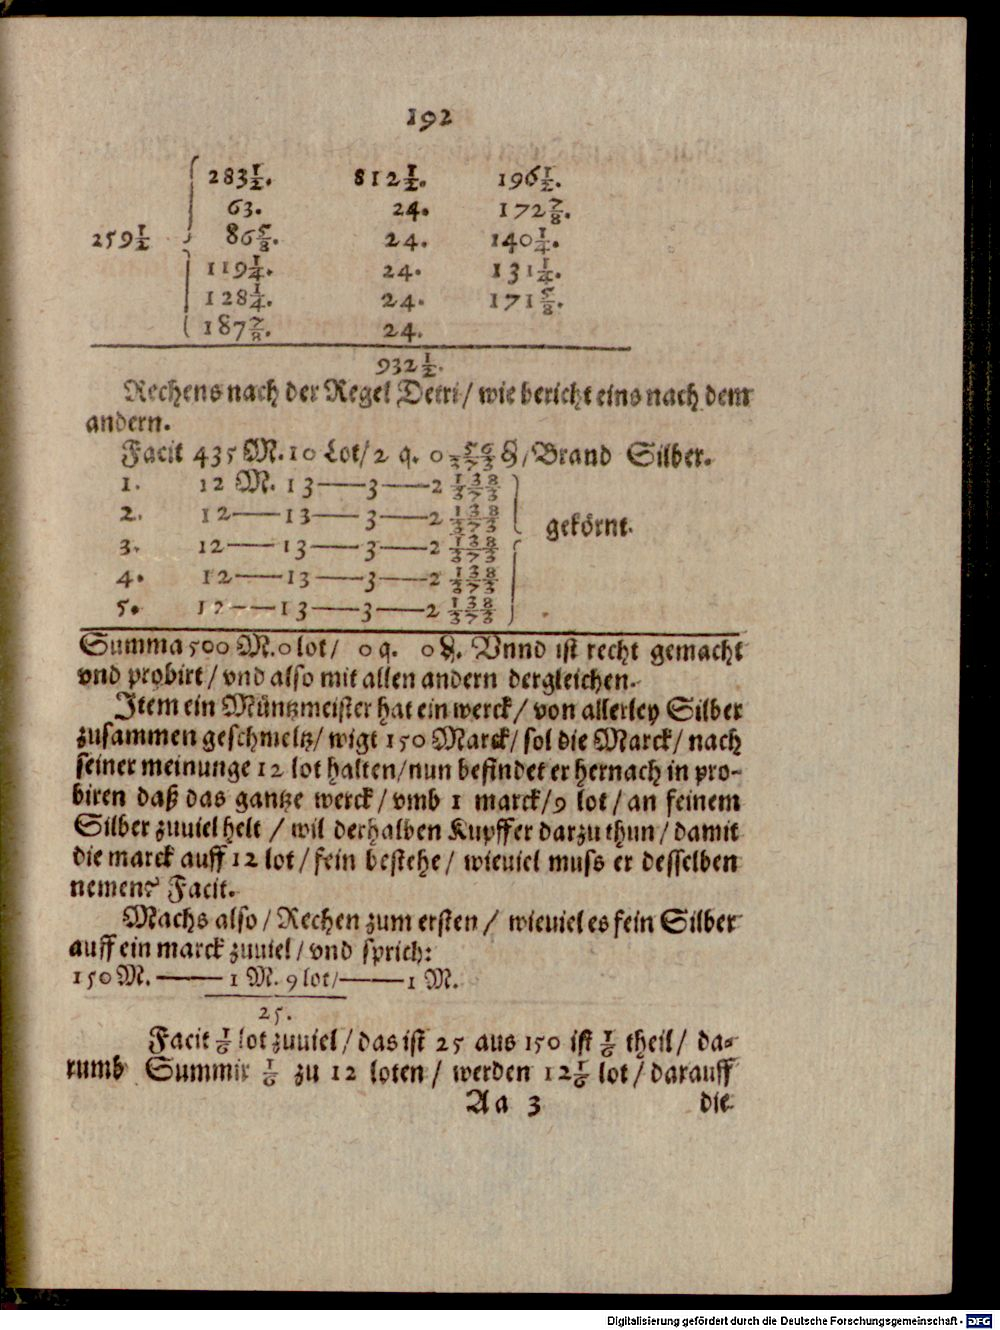 192
283½. 812½. 196½.
63. 24. 172⅞.
259½ 86⅝. 24. 140¼.
119¼. 24. 131¼.
128¼. 24. 171⅝.
187⅞. 24.
932½.
Rechens nach der Regel Detri/ wie bericht eins nach dem
andern.
Facit 435 M. 10 Lot/ 2 q. 0 56/373 ₰/ Brand Silber.
1. 12 M. 13——3——2 138/373
2. 12——13——3——2 138/373
gekörnt.
3. 12——13——3——2 138/373
4. 12——13——3——2 138/373
5. 12——13——3——2 138/373
Summa 500 M. 0 lot/ 0 q. 0 ₰. Vnnd ist recht gemacht
vnd probirt/ vnd also mit allen andern dergleichen.
Item ein Müntzmeister hat ein werck/ von allerley Silber
zusammen geschmeltz/ wigt 150 Marck/ sol die Marck/ nach
seiner meinunge 12 lot halten/ nun befindet er hernach in pro-
biren daß das gantze werck/ vmb 1 marck/ 9 lot/ an feinem
Silber zuuiel helt / wil derhalben Kupffer darzu thun/ damit
die marck auff 12 lot/ fein bestehe/ wieuiel muss er desselben
nemen? Facit.
Machs also/ Rechen zum ersten / wieuiel es fein Silber
auff ein marck zuuiel/ vnd sprich:
150 M. —— 1 M. 9 lot/—— 1 M.
25.
Facit ⅙ lot zuuiel/ das ist 25 aus 150 ist ⅙ theil/ da-
rumb Summir ⅙ zu 12 loten/ werden 12⅙ lot/ darauff
Aa 3 die
Digitalisierung gefördert durch die Deutsche Forschungsgemeinschaft - DFG